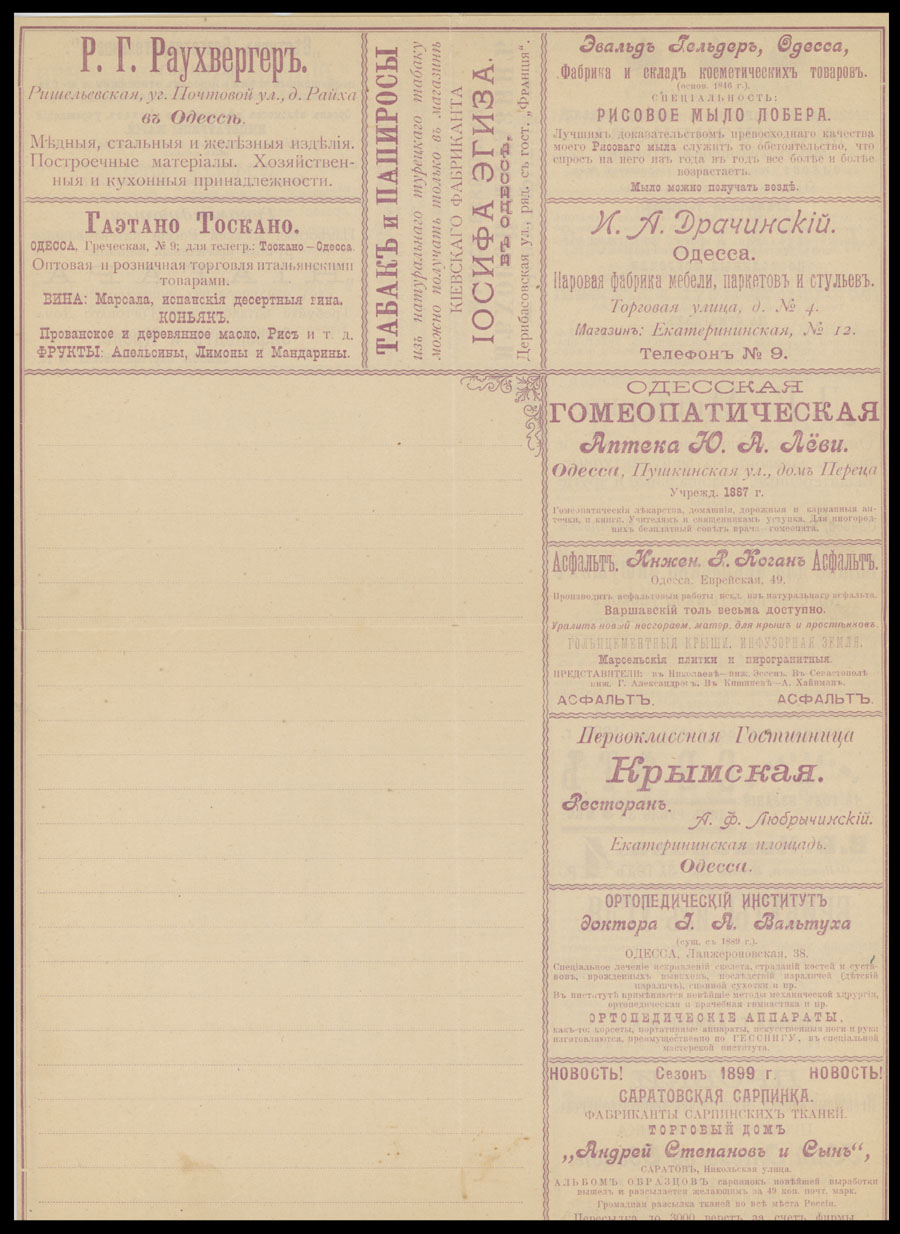 Р. Г. Раухвергеръ.
Ришельевская, уг. Почтовой ул., д. Райха
въ Одессѣ.
Мѣдныя, стальныя и желѣзныя издѣлія.
Построечные матеріалы. Хозяйствен-
ныя и кухонныя принадлежности.
Гаэтано Тоскано.
ОДЕССА, Греческая, № 9; для телегр.: Тоскано—Одесса.
Оптовая и розничная торговля итальянскими
товарами.
ВИНА: Марсала, испанскія десертныя вина,
КОНЬЯКЪ.
Прованское и деревянное масло, Рисъ и т. д.
ФРУКТЫ: Апельсины, Лимоны и Мандарины.
ТАБАКЪ и ПАПИРОСЫ
изъ натуральнаго турецкаго табаку
можно получать только въ магазинѣ
КІЕВСКАГО ФАБРИКАНТА
ІОСИФА ЭГИЗА.
ВЪ ОДЕССѢ,
Дерибасовская ул., ряд. съ гост. „Франція“.
Эвальдъ Гельдеръ, Одесса,
Фабрика и складъ косметическихъ товаровъ.
(основ. 1846 г.).
СПЕЦІАЛЬНОСТЬ:
РИСОВОЕ МЫЛО ЛОБЕРА.
Лучшимъ доказательствомъ превосходнаго качества
моего Рисоваго мыла служитъ то обстоятельство, что
спросъ на него изъ года въ годъ все болѣе и болѣе
возрастаетъ.
Мыло можно получать вездѣ.
И. А. Драчинскій.
Одесса.
Паровая фабрика мебели, паркетовъ и стульевъ.
Торговая улица, д. № 4.
Магазинъ: Екатерининская, № 12.
Телефонъ № 9.
ОДЕССКАЯ
ГОМЕОПАТИЧЕСКАЯ
Аптека Ю. А. Лёви.
Одесса, Пушкинская ул., домъ Переца
Учрежд. 1887 г.
Гомеопатическія лѣкарства, домашнія, дорожныя и карманныя ап-
течки, и книги. Учителямъ и священникамъ уступка. Для иногород-
нихъ безплатный совѣтъ врача—гомеопата.
Асфальтъ. Инжен. Р. Коганъ Асфальтъ.
Одесса, Еврейская, 49.
Производитъ асфальтовыя работы искл. изъ натуральнаго асфальта.
Варшавскій толь весьма доступно.
Уралитъ новый несгораем. матер. для крышъ и простѣнковъ.
ГОЛЬЦЦЕМЕНТНЫЯ КРЫШИ, ИНФУЗОРНАЯ ЗЕМЛЯ.
Марсельскія плитки и пирогранитныя.
ПРЕДСТАВИТЕЛИ: въ Николаевѣ—инж. Эссенъ. Въ Севастополѣ
инж. Г. Александровъ. Въ Кишиневѣ—А. Хайнманъ.
АСФАЛЬТЪ. АСФАЛЬТЪ.
Первоклассная Гостинница
Крымская.
Ресторанъ.
А. Ф. Любрычинскій.
Екатерининская площадь.
Одесса.
ОРТОПЕДИЧЕСКІЙ ИНСТИТУТЪ
доктора І. А. Вальтуха
(сущ. съ 1889 г.).
ОДЕССА, Ланжероновская, 38.
Спеціальное леченіе искривленій скелета, страданій костей и суста-
вовъ, врожденныхъ вывиховъ, послѣдствій параличей (дѣтскій
параличъ), спинной сухотки и пр.
Въ институтѣ примѣняются новѣйшіе методы механической хирургіи,
ортопедическая и врачебная гимнастика и пр.
ОРТОПЕДИЧЕСКІЕ АППАРАТЫ,
какъ-то: корсеты, портативные аппараты, искусственныя ноги и руки
изготовляются, преимущественно по ГЕССИНГУ, въ спеціальной
мастерской института.
НОВОСТЬ! Сезонъ 1899 г. НОВОСТЬ!
САРАТОВСКАЯ САРПИНКА.
ФАБРИКАНТЫ САРПИНСКИХЪ ТКАНЕЙ.
ТОРГОВЫЙ ДОМЪ
„Андрей Степановъ и Сынъ“,
САРАТОВЪ, Никольская улица.
АЛЬБОМЪ ОБРАЗЦОВЪ сарпинокъ новѣйшей выработки
вышелъ и разсылается желающимъ за 49 коп. почт. марк.
Громадная разсылка тканей во всѣ мѣста Россіи.
Пересылка до 3000 верстъ за счетъ фирмы.